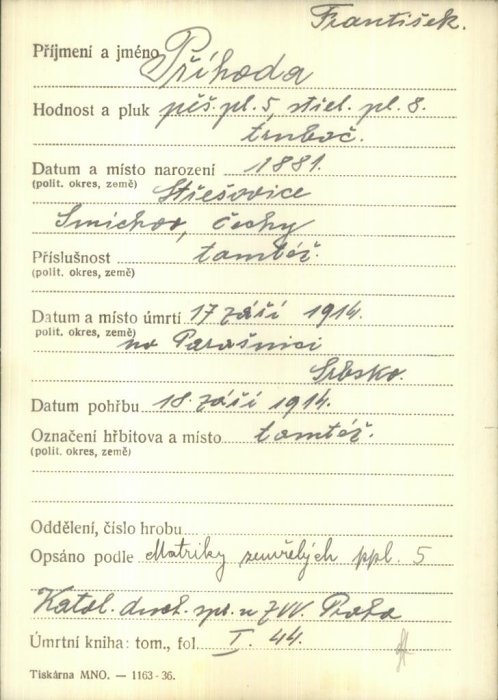 František.
Příjmení a jméno Příhoda
Hodnost a pluk pěš. pl. 5, střel. pl. 8.
trubač.
Datum a místo narození 1881.
(polit. okres, země) Střešovice
Smíchov, Čechy
Příslušnost tamtéž.
(polit. okres, země)
Datum a místo úmrtí 17 září 1914.
polit. okres, země) na Parašnici
Srbsko.
Datum pohřbu 18. září 1914.
Označení hřbitova a místo tamtéž.
(polit. okres, země)
Oddělení, číslo hrobu
Opsáno podle Matriky zemřelých ppl. 5
Katol. duch. spr. u ZVV. Praha
Úmrtní kniha: tom., fol. I. 44.
Tiskárna MNO. — 1163-36.